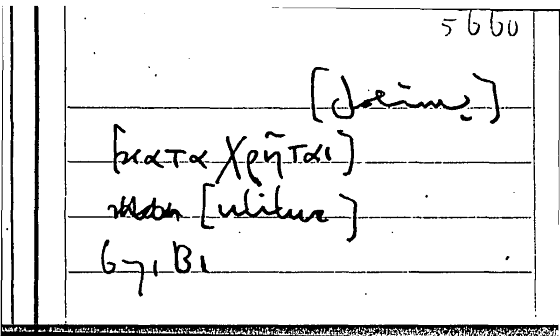 5660
[κατα Χρῆται]
[utitur]
67, B1